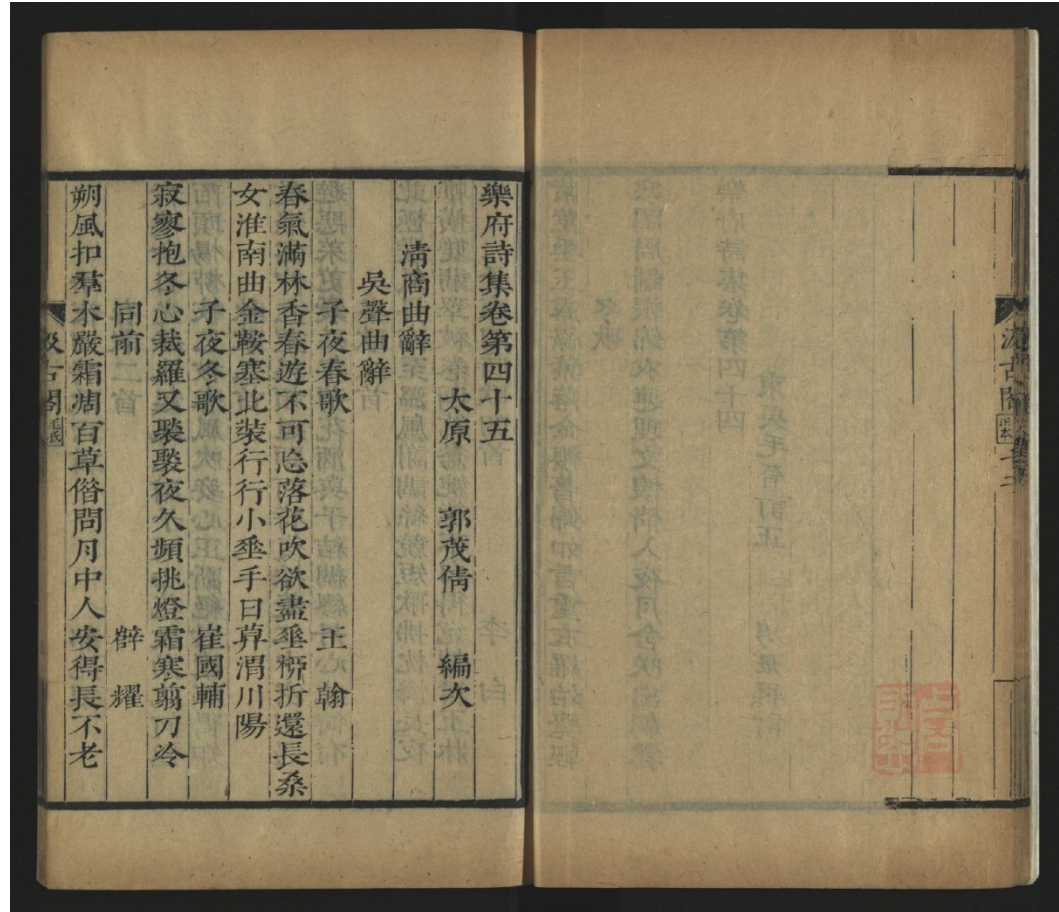 樂府詩集卷第四十五
太原 郭茂倩 編次
清商曲辭
吳聲曲辭
子夜春歌 王翰
春氣滿林香春遊不可忘落花吹欲盡垂桺折還長桑
女淮南曲金鞍塞北裝行行小垂手日暮渭川陽
子夜冬歌 崔國輔
寂寥抱冬心裁羅又褧褧夜久頻挑燈霜寒剪刀冷
同前二首 薛耀
朔風扣羣木嚴霜凋百草借問月中人安得長不老
汲古閣 毛氏
汲古閣